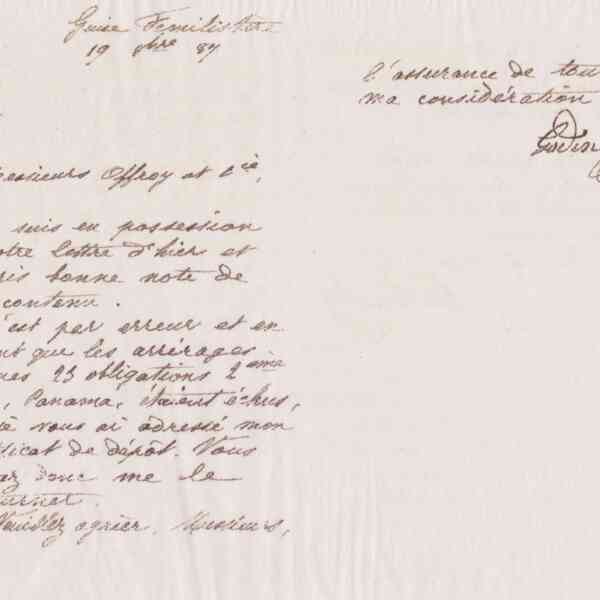 Guise Familistère
19 9bre 87
Messieurs Offroy et Cie,
suis en possession
otre lettre d'hier et
ris bonne note de
contenu.
'est par erreur et en
nt que les arrérages
mes 23 obligations 2ème
, Panama, étaient échus,
je vous ai adressé mon
ficat de dépôt. Vous
ez donc me le
urner.
Veuillez agréer, Messieurs,
l'assurance de tou
ma considération
Godin